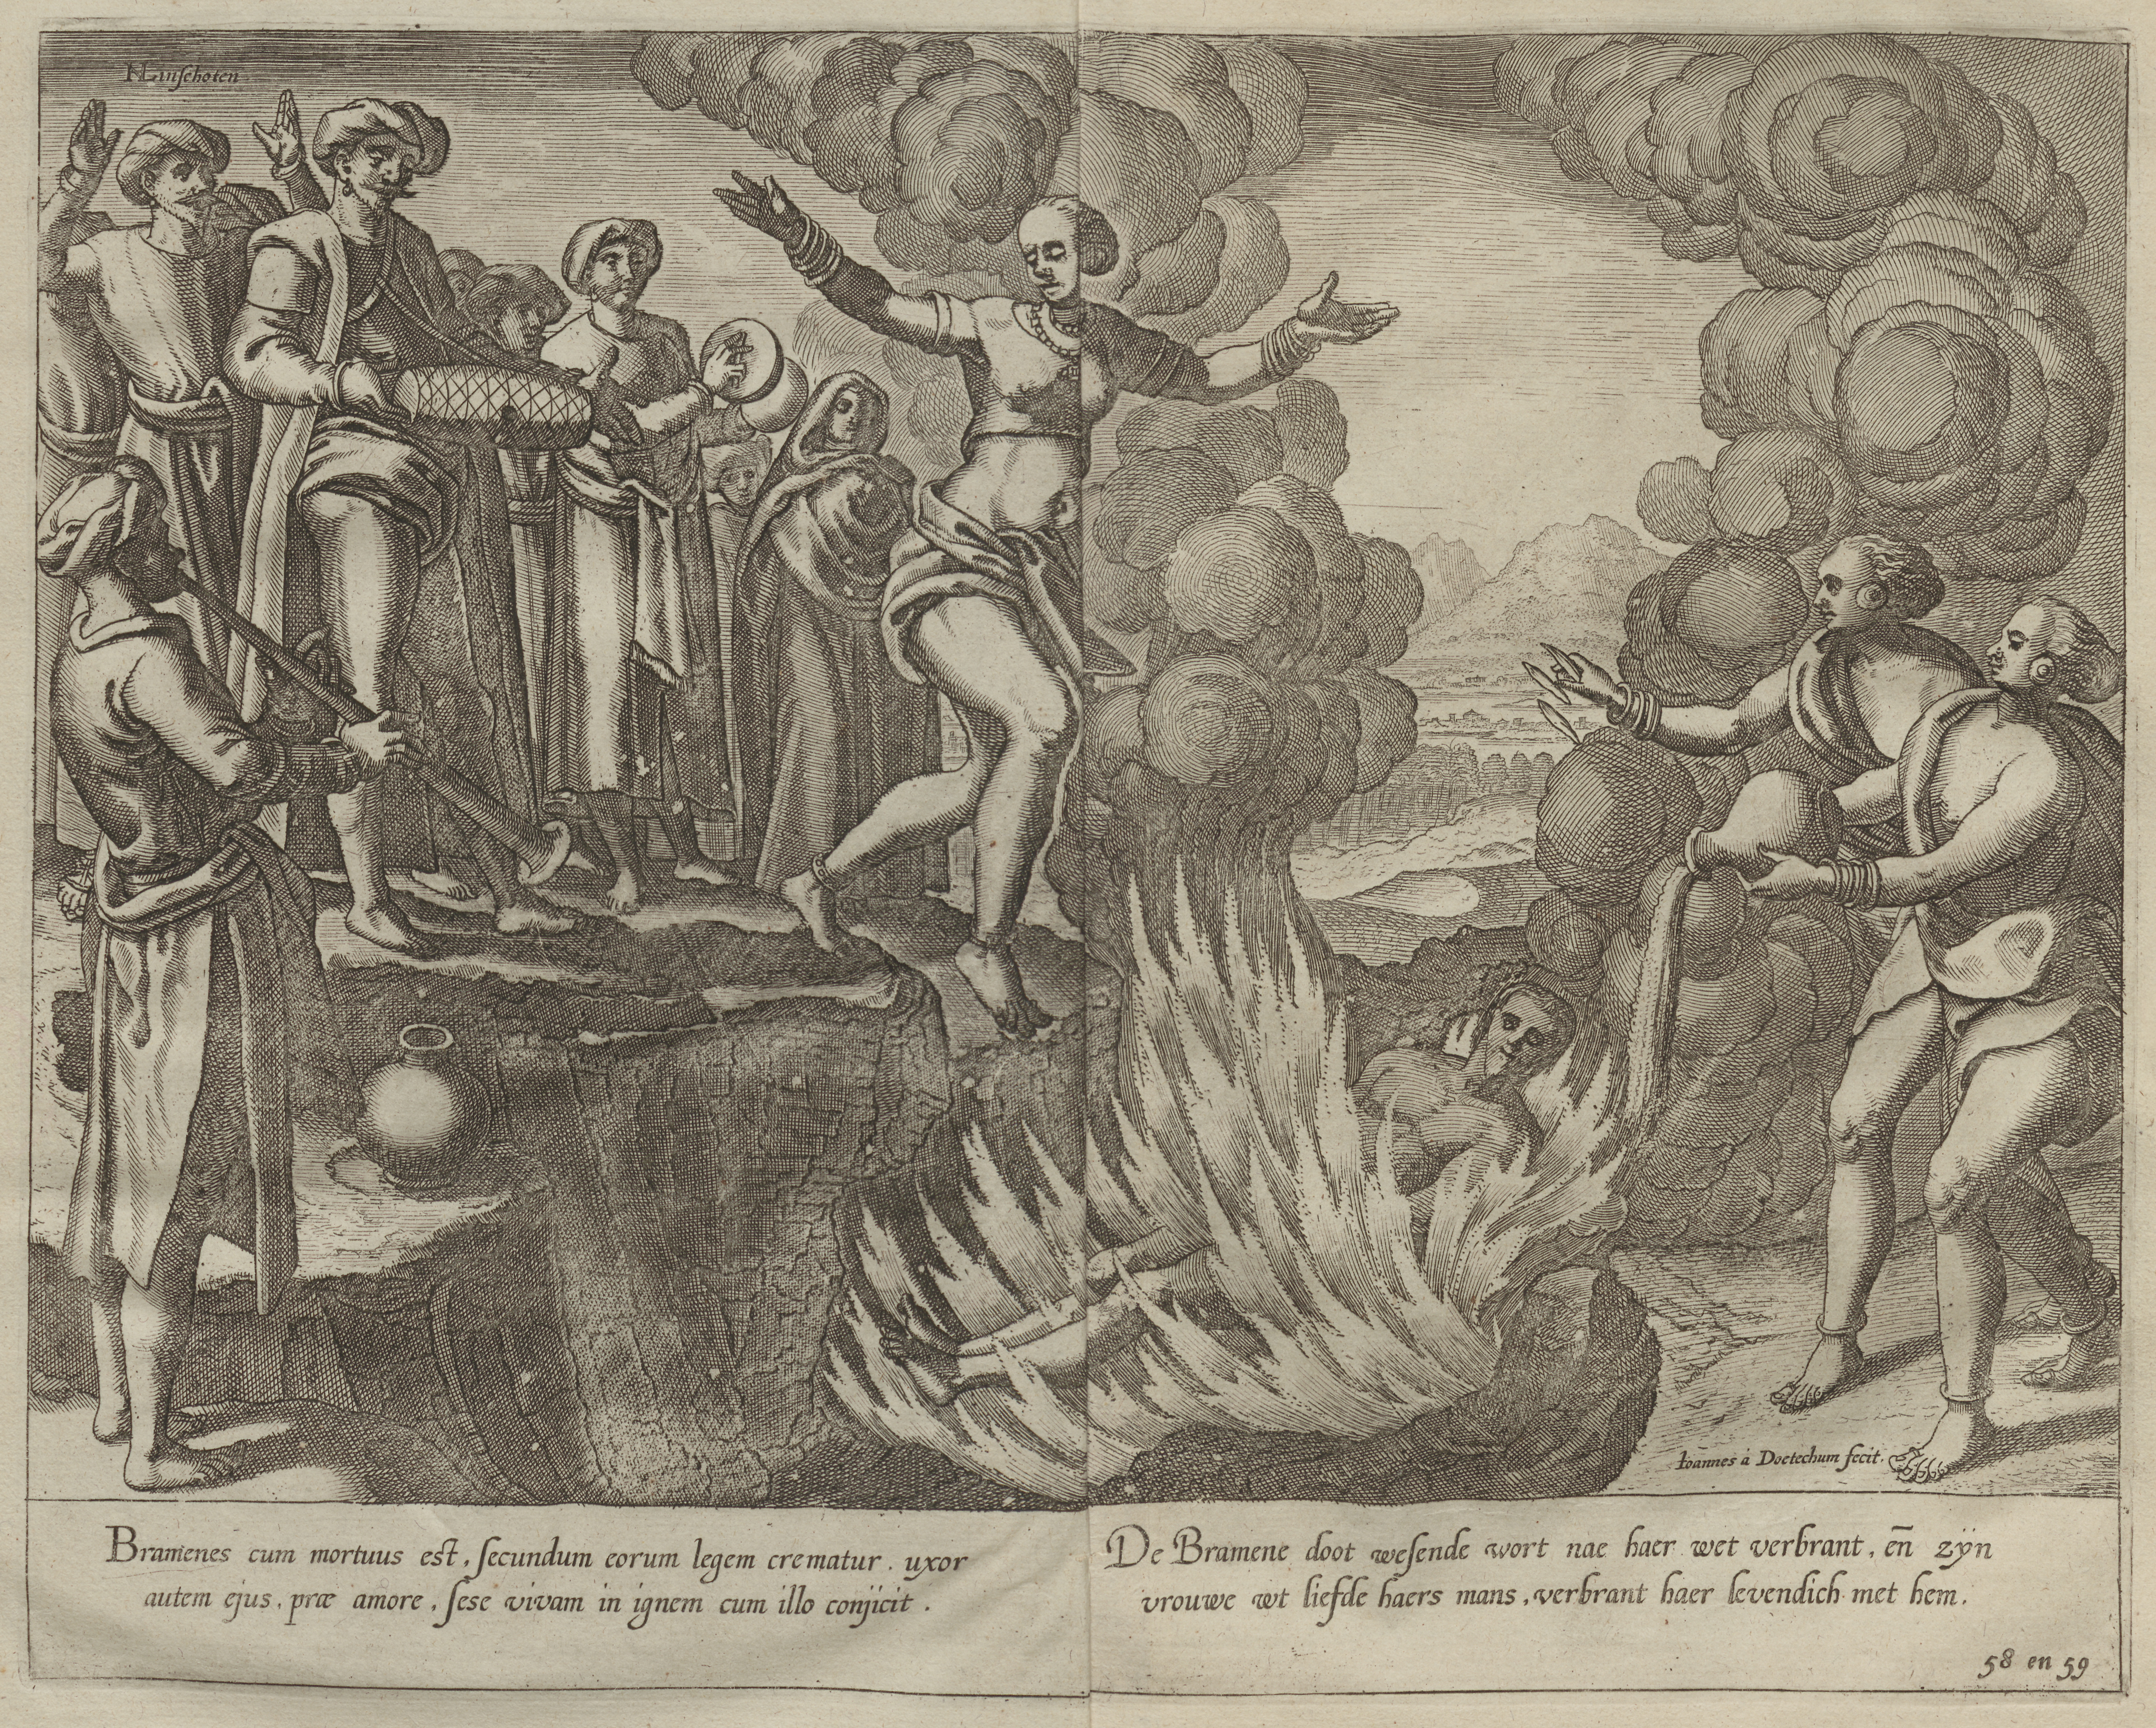 Linſchoten.
Ioannes à Doetechum fecit.
Bramenes cum mortuus est, ſecundum eorum legem crematur. uxor
autem ejus, præ amore, ſese vivam in ignem cum illo conjicit.
De Bramene doot weſende wort nae haer wet verbrant, en̄ zÿn
vrouwe wt liefde haers mans, verbrant haer levendich met hem.
58 en 59